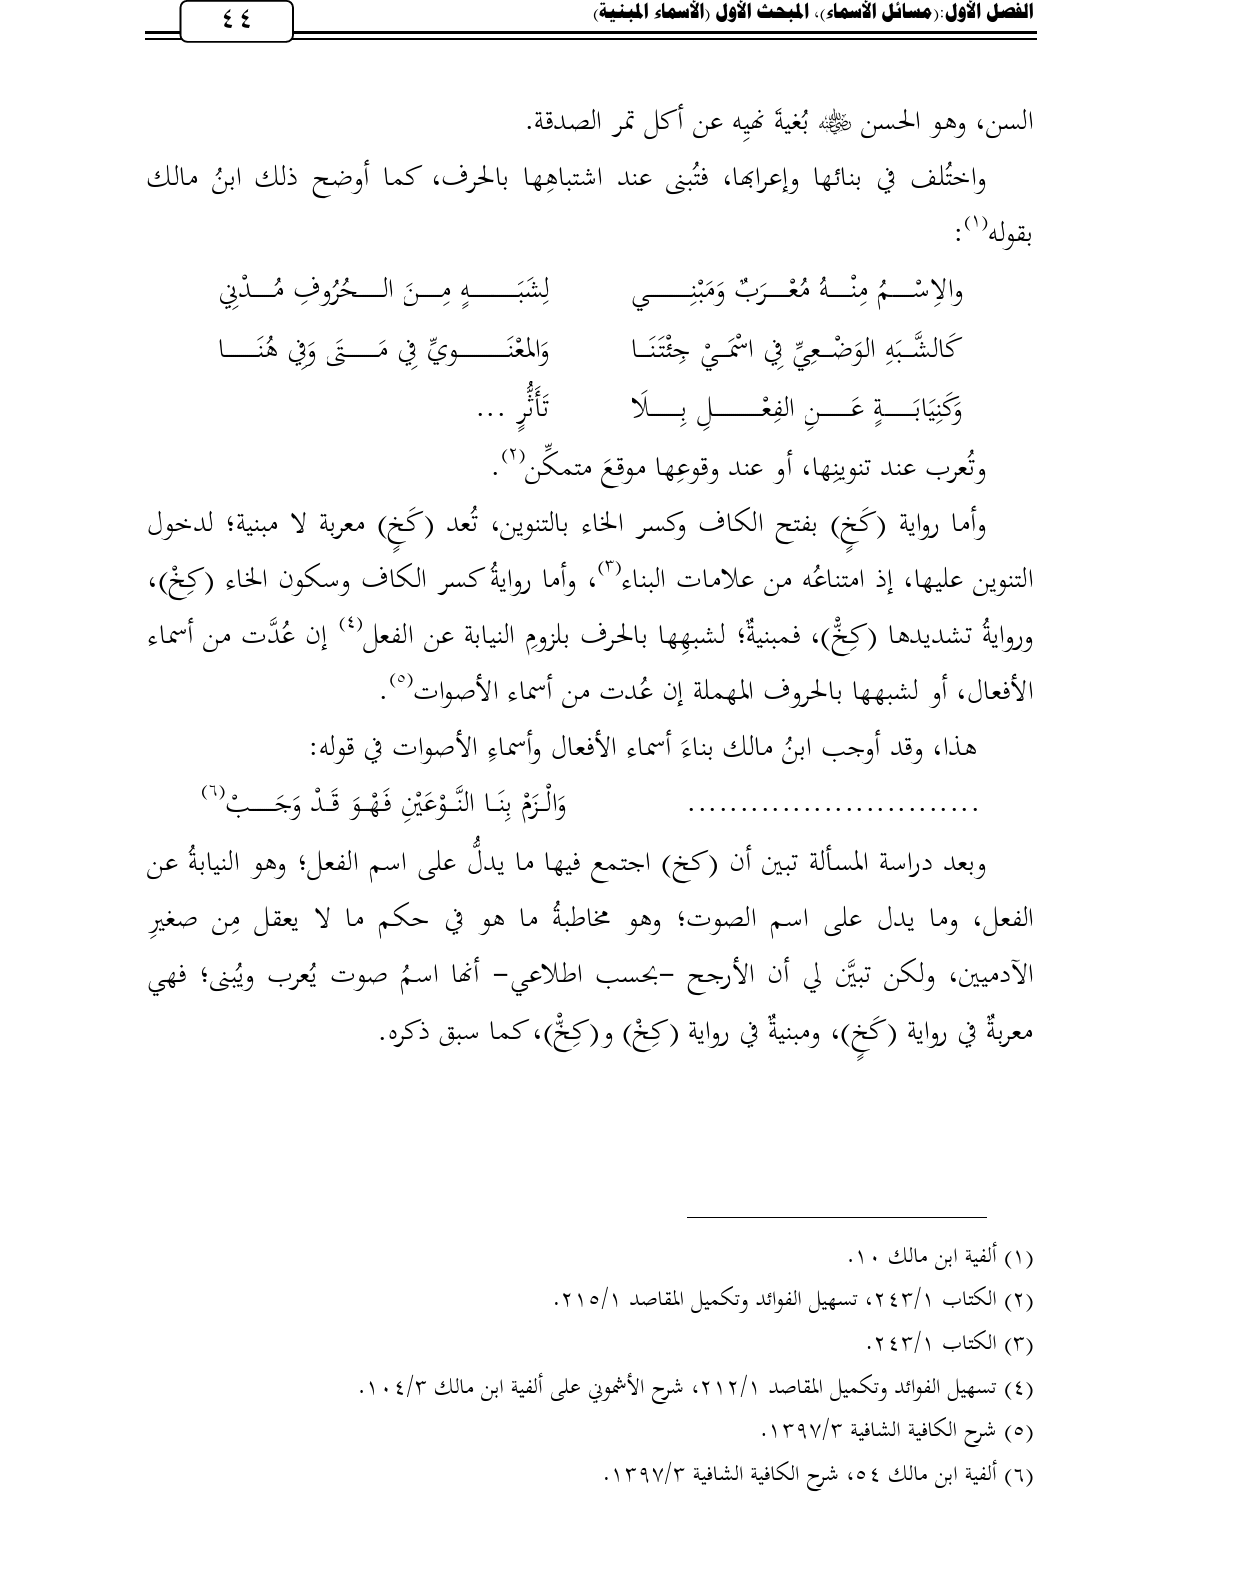 الفصل الأول:(مسائل الأسماء)، المبحث الأول (الأسماء المبنية)
٤٤
السن، وهو الحسن ﷺ بُغيةَ نهيِه عن أكل تمر الصدقة.
واختُلف في بنائها وإعرابها، فتُبنى عند اشتباهِها بالحرف، كما أوضح ذلك ابنُ مالك
بقوله(١):
والاِسْمُ مِنْهُ مُعْرَبٌ وَمَبْنِي لِشَبَهٍ مِنَ الحُرُوفِ مُدْنِي
كَالشَّبَهِ الوَضْعِيِّ فِي اسْمَيْ جِئْتَنَا وَالمعْنَويِّ فِي مَتَى وَفِي هُنَا
وَكَنِيَابَةٍ عَنِ الفِعْلِ بِلَا تَأَثُّرٍ ...
وتُعرب عند تنوينِها، أو عند وقوعِها موقعَ متمكِّن(٢).
وأما رواية (كَخٍ) بفتح الكاف وكسر الخاء بالتنوين، تُعد (كَخٍ) معربة لا مبنية؛ لدخول
التنوين عليها، إذ امتناعُه من علامات البناء(٣)، وأما روايةُ كسر الكاف وسكون الخاء (كِخْ)،
وروايةُ تشديدها (كِخّْ)، فمبنيةٌ؛ لشبهِها بالحرف بلزومِ النيابة عن الفعل(٤) إن عُدَّت من أسماء
الأفعال، أو لشبهها بالحروف المهملة إن عُدت من أسماء الأصوات(٥).
هذا، وقد أوجب ابنُ مالك بناءَ أسماء الأفعال وأسماءِ الأصوات في قوله:
............................ وَالْزَمْ بِنَا النَّوْعَيْنِ فَهْوَ قَدْ وَجَبْ(٦)
وبعد دراسة المسألة تبين أن (كخ) اجتمع فيها ما يدلُّ على اسم الفعل؛ وهو النيابةُ عن
الفعل، وما يدل على اسم الصوت؛ وهو مخاطبةُ ما هو في حكم ما لا يعقل مِن صغيرِ
الآدميين، ولكن تبيَّن لي أن الأرجح –بحسب اطلاعي– أنها اسمُ صوت يُعرب ويُبنى؛ فهي
معربةٌ في رواية (كَخٍ)، ومبنيةٌ في رواية (كِخْ) و(كِخّْ)، كما سبق ذكره.
(١) ألفية ابن مالك ١٠.
(٢) الكتاب ٢٤٣/١، تسهيل الفوائد وتكميل المقاصد ٢١٥/١.
(٣) الكتاب ٢٤٣/١.
(٤) تسهيل الفوائد وتكميل المقاصد ٢١٢/١، شرح الأشموني على ألفية ابن مالك ١٠٤/٣.
(٥) شرح الكافية الشافية ١٣٩٧/٣.
(٦) ألفية ابن مالك ٥٤، شرح الكافية الشافية ١٣٩٧/٣.